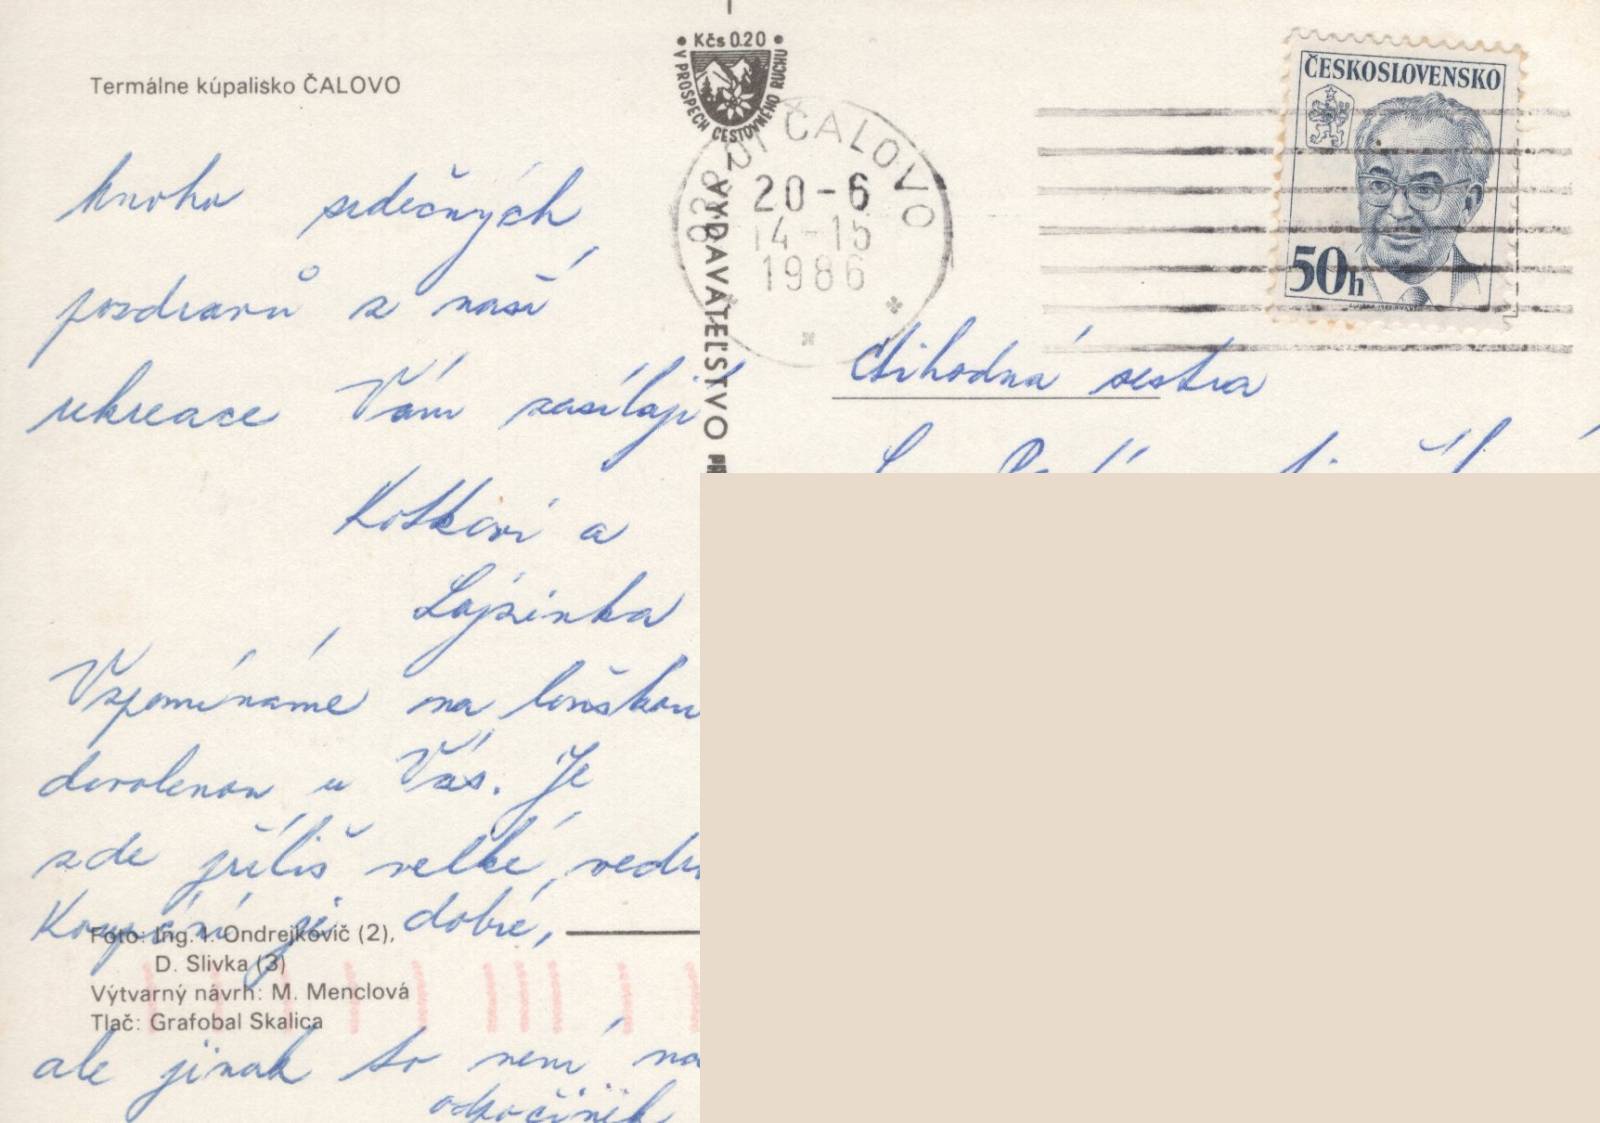 Termálne kúpalisko ČALOVO
Kčs 0.20
V PROSPECH CESTOVNÉHO RUCHU
ČALOVO
20-6
14-15
1986
ČESKOSLOVENSKO
50h
VYDAVATEĽSTVO
mnoho srdečných
pozdravů z naší
rekreace Vám zasílají
Kotkovi a
Lojzinka
Vzpomínáme na loňskou
dovolenou u Vás. Je
zde příliš velké vedr
Koupání je dobré,
ale jinak to není na
odpočinek
Ctihodná sestra
Foto: Ing. I. Ondrejkovič (2),
D. Slivka (3)
Výtvarný návrh: M. Menclová
Tlač: Grafobal Skalica